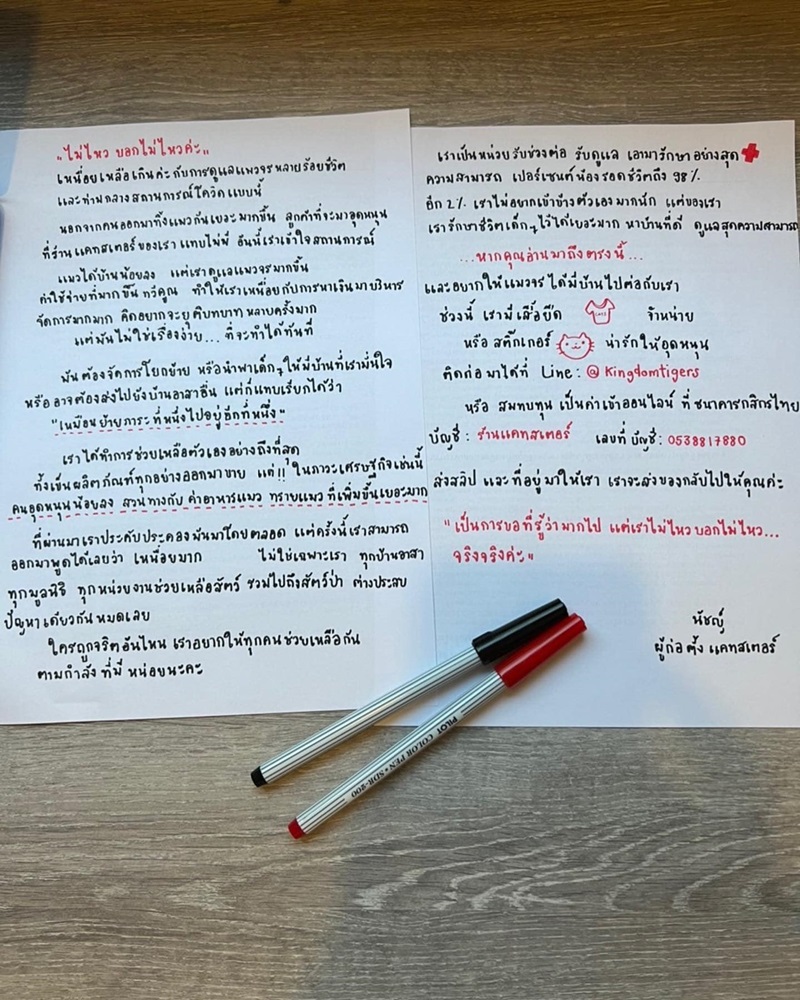 "ไม่ไหว บอกไม่ไหวค่ะ"
เหนื่อยเหลือเกินค่ะ กับการดูแลแมวจรหลายร้อยชีวิต
และท่ามกลางสถานการณ์โควิดแบบนี้
นอกจากคนออกมาทิ้งแมวกันเยอะมากขึ้น ลูกค้าที่จะมาอุดหนุน
ที่ร้านแคทสเตอร์ของเรา แทบไม่มี อันนี้เราเข้าใจสถานการณ์
แมวได้บ้านน้อยลง แต่เราดูแลแมวจรมากขึ้น
ค่าใช้จ่ายที่มากขึ้น ทวีคูณ ทำให้เราเหนื่อยกับการหาเงินมาบริหาร
จัดการมากมาก คิดอยากจะยุติบทบาท หลายครั้งมาก
แต่มันไม่ใช่เรื่องง่าย... ที่จะทำได้ทันที
มันต้องจัดการโยกย้าย หรือนำพาเด็กๆ ให้มีบ้านที่เรามั่นใจ
หรืออาจต้องส่งไปยังบ้านอาสาอื่น แต่ก็แทบเรียกได้ว่า
"เหมือนย้ายภาระ ที่หนึ่งไปอยู่อีกที่หนึ่ง"
เราได้ทำการช่วยเหลือตัวเองอย่างถึงที่สุด
ทั้งเข็นผลิตภัณฑ์ทุกอย่างออกมาขาย แต่!! ในภาวะเศรษฐกิจเช่นนี้
คนอุดหนุนน้อยลง สวนทางกับ ค่าอาหารแมว ทรายแมว ที่เพิ่มขึ้นเยอะมาก
ที่ผ่านมาเราประคับประคองมันมาโดยตลอด แต่ครั้งนี้เราสามารถ
ออกมาพูดได้เลยว่า เหนื่อยมาก ไม่ใช่เฉพาะเรา ทุกบ้านอาสา
ทุกมูลนิธิ ทุกหน่วยงานช่วยเหลือสัตว์ รวมไปถึงสัตว์ป่า ต่างประสบ
ปัญหาเดียวกันหมดเลย
ใครถูกจริตอันไหน เราอยากให้ทุกคนช่วยเหลือกัน
ตามกำลัง ที่มี หน่อยนะคะ
เราเป็นหน่วยรับช่วงต่อ รับดูแล เอามารักษาอย่างสุด
ความสามารถ เปอร์เซนต์น้องรอดชีวิตถึง 98 %
อีก 2% เราไม่อยากเข้าข้างตัวเองมากนัก แต่ของเรา
เรารักษาชีวิตเด็กๆ ไว้ได้เยอะมาก หาบ้านที่ดี ดูแลสุดความสามารถ
...หากคุณอ่านมาถึงตรงนี้...
และอยากให้แมวจร ได้มีบ้านไปต่อกับเรา
ช่วงนี้ เรามีเสื้อยืด จำหน่าย
หรือ สติ๊กเกอร์ น่ารักให้อุดหนุน
ติดต่อมาได้ที่ Line : @kingdomtigers
หรือ สมทบทุน เป็นค่าเข้าออนไลน์ ที่ ธนาคารกสิกรไทย
บัญชี : ร้านแคทสเตอร์ เลขที่บัญชี : 0538817880
ส่งสลิป และ ที่อยู่มาให้เรา เราจะส่งของกลับไปให้คุณค่ะ
"เป็นการขอที่รู้ว่ามากไป แต่เราไม่ไหวบอกไม่ไหว...
จริงจริงค่ะ"
นัชญ์
ผู้ก่อตั้ง แคทสเตอร์
PILOT COLOR PEN • SDR-200